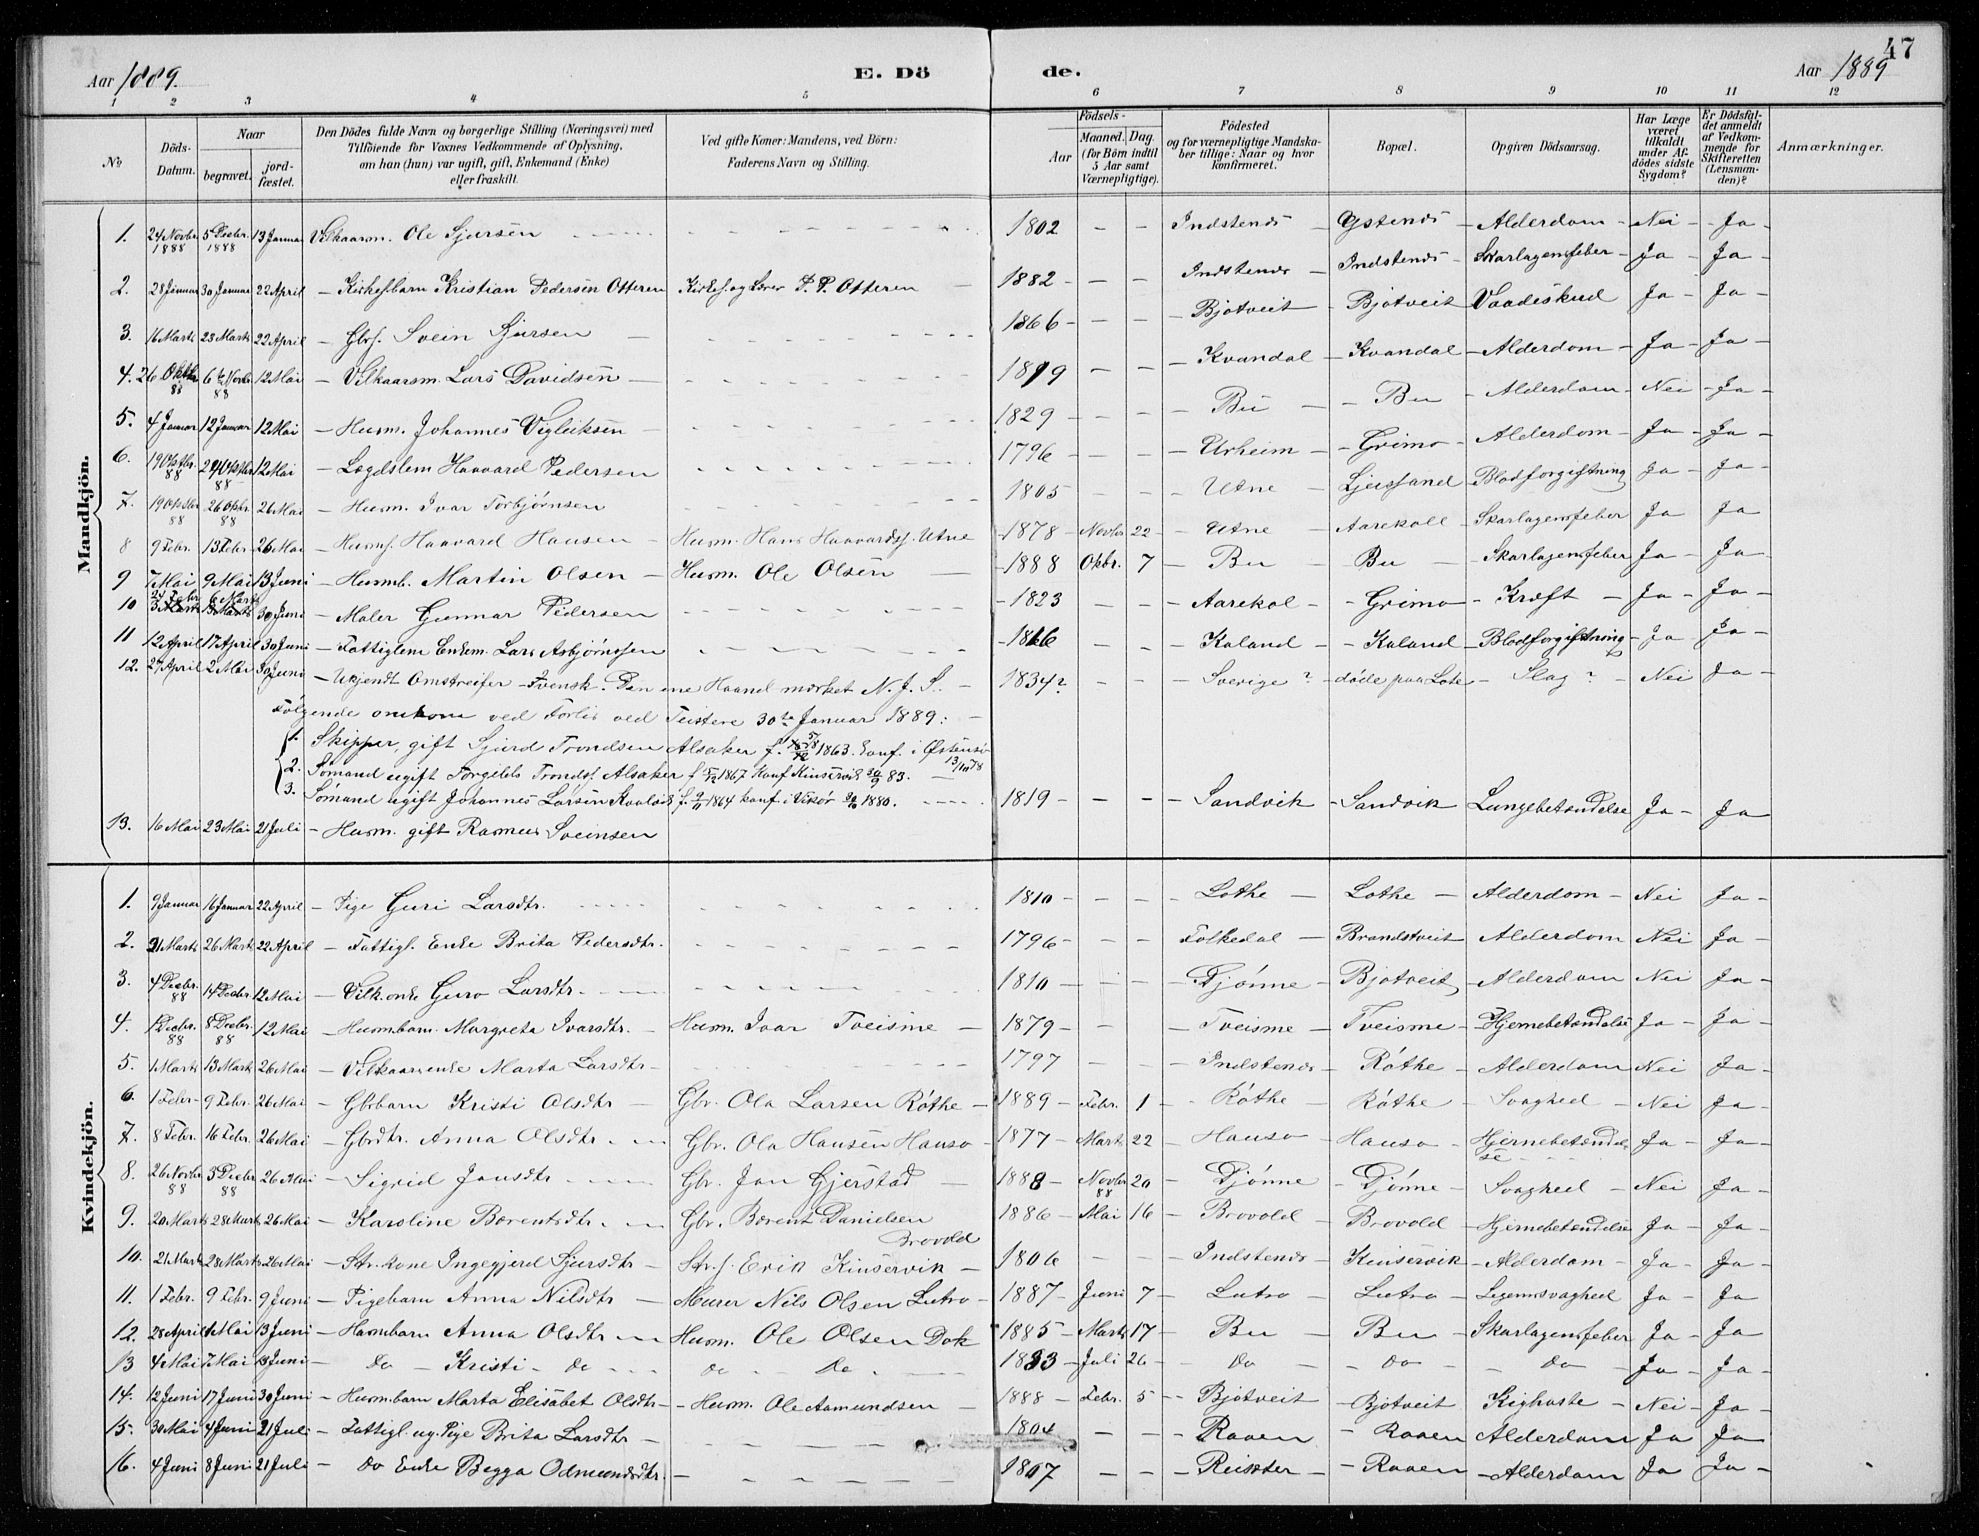 47
Aar 1889. E. Dö de. Aar 1889
1 2 3 4 5 6 7 8 9 10 11 12
No Döds-Datum. Naar begravet. jordfæstet. Den Dödes fulde Navn og borgerlige Stilling (Næringsvei) med Tilföiende for Voxnes Vedkommende af Oplysning, om han (hun) var ugift, gift, Enkemand (Enke) eller fraskilt. Ved gifte Koner: Mandens, ved Börn: Faderens Navn og Stilling. Födsels- Aar Maaned. Dag. (for Börn indtil 5 Aar samt Værnepligtige). Födested og for værnepligtige Mandskaber tillige: Naar og hvor konfirmeret. Bopæl. Opgiven Dödsaarsag. Har Læge været tilkaldt under Afdödes sidste Sygdom? Er Dödsfaldet anmeldt af Vedkommende for Skifteretten (Lensmanden)? Anmærkninger.
Mandkjön.
1. 24 Novbr. 1888 5 Decbr. 1888 13 Januar Vilkaarsm. Ole Sjursen 1802 - - Indstenes Ystenes - Alderdom - Nei - Ja -
2. 28 Januar 30 Januar 22 April - Kirkesbarn Kristian Pedersen Otteren Kirkes. og Lærer P. P. Otteren 1882 - - Indstenes - Indstenes - Skarlagensfeber - Ja - Ja -
3. 16 Marts 23 Marts 22 April - Gbrs. Svein Sjursen 1866 - - Bjotveit - Bjotveit Vaadeskud Ja - Ja -
4. 26 Oktbr. 88 6te Novbr. 88 12 Mai - Vilkaarsm. Lars Davidsen 1819 - - Kvandal - Kvandal - Alderdom - Ja - Ja -
5. 4 Januar 12 Januar 12 Mai - Husm. Johannes Vigleiksen 1829 - - Bu - Bu - Alderdom - Nei - Ja -
6. 19 Oktbr. 88 29 Oktbr. 88 12 Mai - Lægdslem Haavard Pedersen 1796 - - Urheim - Grimo - Alderdom - Ja - Ja -
7. 19 Oktbr. 88 26 Oktbr. 88 26 Mai - Husm. Ivar Torbjørnsen 1805 - - Utne - Blodforgiftning Ja - Ja
8 9 Febr. 13 Febr. 26 Mai - Husms. Haavard Hansen - Husm. Hans Haavards. Utne 1878 - Novbr 22 - Utne - Aarekoll - Skarlagensfeber Ja Ja
9 7 Mai 9 Mai 13 Juni - Husmb. Martin Olsen - Husm. Ole Olsen 1888 Oktbr. 7 - Bu - Bu - Skarlagensfeber Ja - Ja
10 24 Febr. 6 Marts 30 Juni - Maler Gunnar Pedersen 1823 - - Aarekol - Grimo - Kræft - Ja - Ja -
11 12 April 17 April 30 Juni - Fattiglem Enkem. Lars Asbjørnsen 1816 - - Kaland - Kaland - Blodforgiftning - Ja - Ja -
12. 27 April 2 Mai 30 Juni - Ukjendt Omstreifer - Svensk. Den ene Haand mærket N. J. S. - 1834? - - Sverige ? - døde paa Lote - Slag ? - Nei Ja -
Følgende omkom ved Forlis ved Teistene 30te Januar 1889:
1. Skipper, gift Sjurd Trondsen Alsaker f. 1863. konf. i Østensø 13/10 78
2. Sømand ugift Torgils Tronds. Alsaker f. 1867 Konf Kinservik 30/9 83.
3. Sømand ugift Johannes Larsen f. 9/11 1864 konf. i Vikør 1880.
13. 16 Mai 23 Mai 21 Juli - Husm. gift Rasmus Sveinsen 1819 - - Sandvik - Sandvik Lungebetændelse Ja - Ja
Kvindekjön.
1. 9 Januar 16 Januar 22 April - Pige Guri Larsdtr. 1810 - - Lothe - Lothe - Alderdom - Nei Ja -
2. 21 Marts 26 Marts 22 April - Fattigl. Enke Brita Pedersdtr. 1796 - - Folkedal - Brandstveit Alderdom Nei Ja -
3. 4 Decbr. 88 14 Decbr. 12 Mai - Vilk. enke Guro Larsdtr. 1810 - - Djønne - Bjotveit - Alderdom Nei Ja -
4. 1 Decbr. 88 8 Decbr. 88 12 Mai - Husmbarn Margreta Ivarsdtr. - Husm. Ivar Tveisme - 1879 - - Tveisme - Tveisme - Hjernebetændelse Ja - Ja -
5. 1 Marts 13 Marts 26 Mai - Vilkaarsenke Marta Larsdtr - 1797 - - Indstenes Røthe - Alderdom Nei Ja -
6. 1 Febr - 9 Febr. 26 Mai - Gbrbarn Kristi Olsdtr - Gbr. Ola Larsen Røthe - 1889 - Febr. 1 - Røthe - Røthe - Svaghed - Nei Ja -
7. 8 Febr. 16 Febr. 26 Mai - Gbrdtr. Anna Olsdtr. - Gbr. Ola Hansen Hauso - 1877 - Marts 22 - Hauso - Hauso - Hjernebetændelse Ja - Ja -
8. 26 Novbr. 88 3 Decbr 88 26 Mai - Sigrid Jonsdtr. - Gbr. Jon Gjerstad - 1888 - Novbr 88 20 - Djønne - Djønne - Svaghed - Nei Ja -
9. 20 Marts 28 Marts 26 Mai - Karoline Børentsdtr. - Gbr. Børent Danielsen Brovold 1886 - Mai 16 - Brovold - Brovold - Hjernebetændelse Ja - Ja -
10. 21 Marts 28 Marts 26 Mai - Str. kone Ingegjerd Sjursdtr - Str. s. Erik Kinservik - 1806 - - Indstenes Kinservik - Alderdom - Ja - Ja -
11. 1 Febr. 9 Febr. 9 Juni - Pigebarn Anna Nilsdtr - Murer Nils Olsen Lutro - 1887 - Juni 7 - Lutro - Lutro - Legemssvaghed Ja - Ja
12. 28 April 1 Mai 13 Juni - Husmbarn Anna Olsdtr - Husm. Ole Olsen Dok 1885 - Marts 17 - Bu - Bu - Skarlagensfeber Ja - Ja
13 4 Mai 7 Mai 13 Juni - Do - Kristi - do - do - Do 1883 - Juli 26 - Do - Do - Do - Ja - Ja -
14. 12 Juni 17 Juni 30 Juni - Husmbarn Marta Elisabet Olsdtr - Husm. Ole Aamundsen - 1888 - Febr. 5 - Bjotveit - Bjotveit Kighoste - Nei - Ja -
15- 30 Mai 4 Juni 21 Juli - Fattigl. ug. Pige Brita Larsdtr - 1804 - - Raaen - Raaen Alderdom Ja Ja -
16. 4 Juni 8 Juni 21 Juli - Do Enke Begga Odmundsdtr. - 1807 - - Reisæter - Raaen - Alderdom Ja Ja -